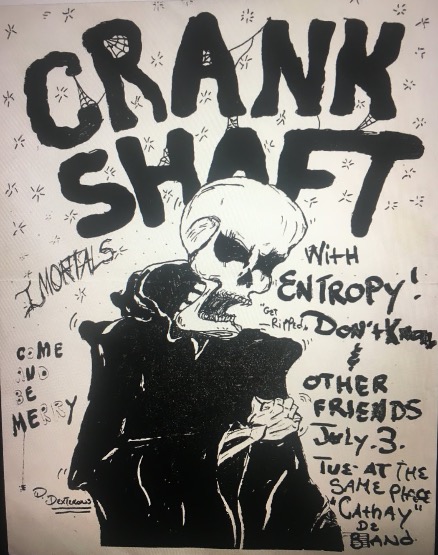 CRANK
SHAFT
IMORTALS
With
ENTROPY!
"Get
Ripped"
Don't Know
&
OTHER
FRIENDS
July.3.
TUE- AT THE
SAME PLACE
"CATHAY"
DE
COME
AND
BE
MERRY
D. DEXTEROUS